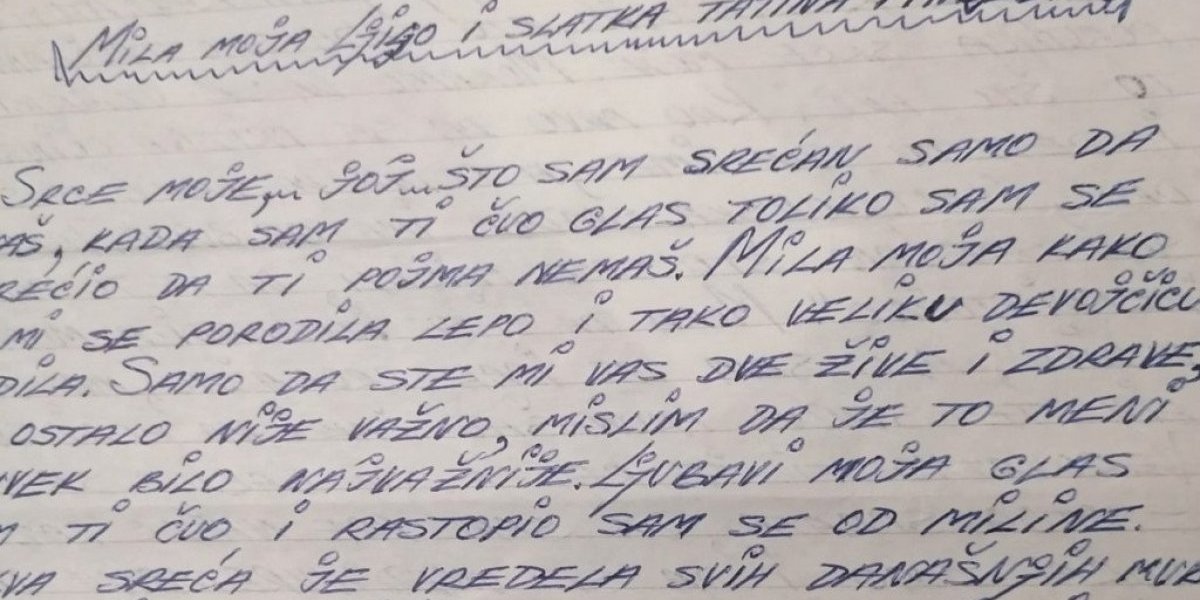 MILA MOJA LJILJO I SLATKA TATINA
SRCE MOJE,,, JOJ,,, ŠTO SAM SREĆAN SAMO DA
AŠ, KADA SAM TI ČUO GLAS TOLIKO SAM SE
REĆIO DA TI POJMA NEMAŠ. MILA MOJA KAKO
MI SE PORODILA LEPO I TAKO VELIKU DEVOJČICU
DILA. SAMO DA STE MI VAS DVE ŽIVE I ZDRAVE,
OSTALO NIJE VAŽNO, MISLIM DA JE TO MENI
VEK BILO NAJVAŽNIJE. LJUBAVI MOJA GLAS
M TI ČUO I RASTOPIO SAM SE OD MILINE.
KVA SREĆA JE VREDELA SVIH DANAŠNJIH MUK